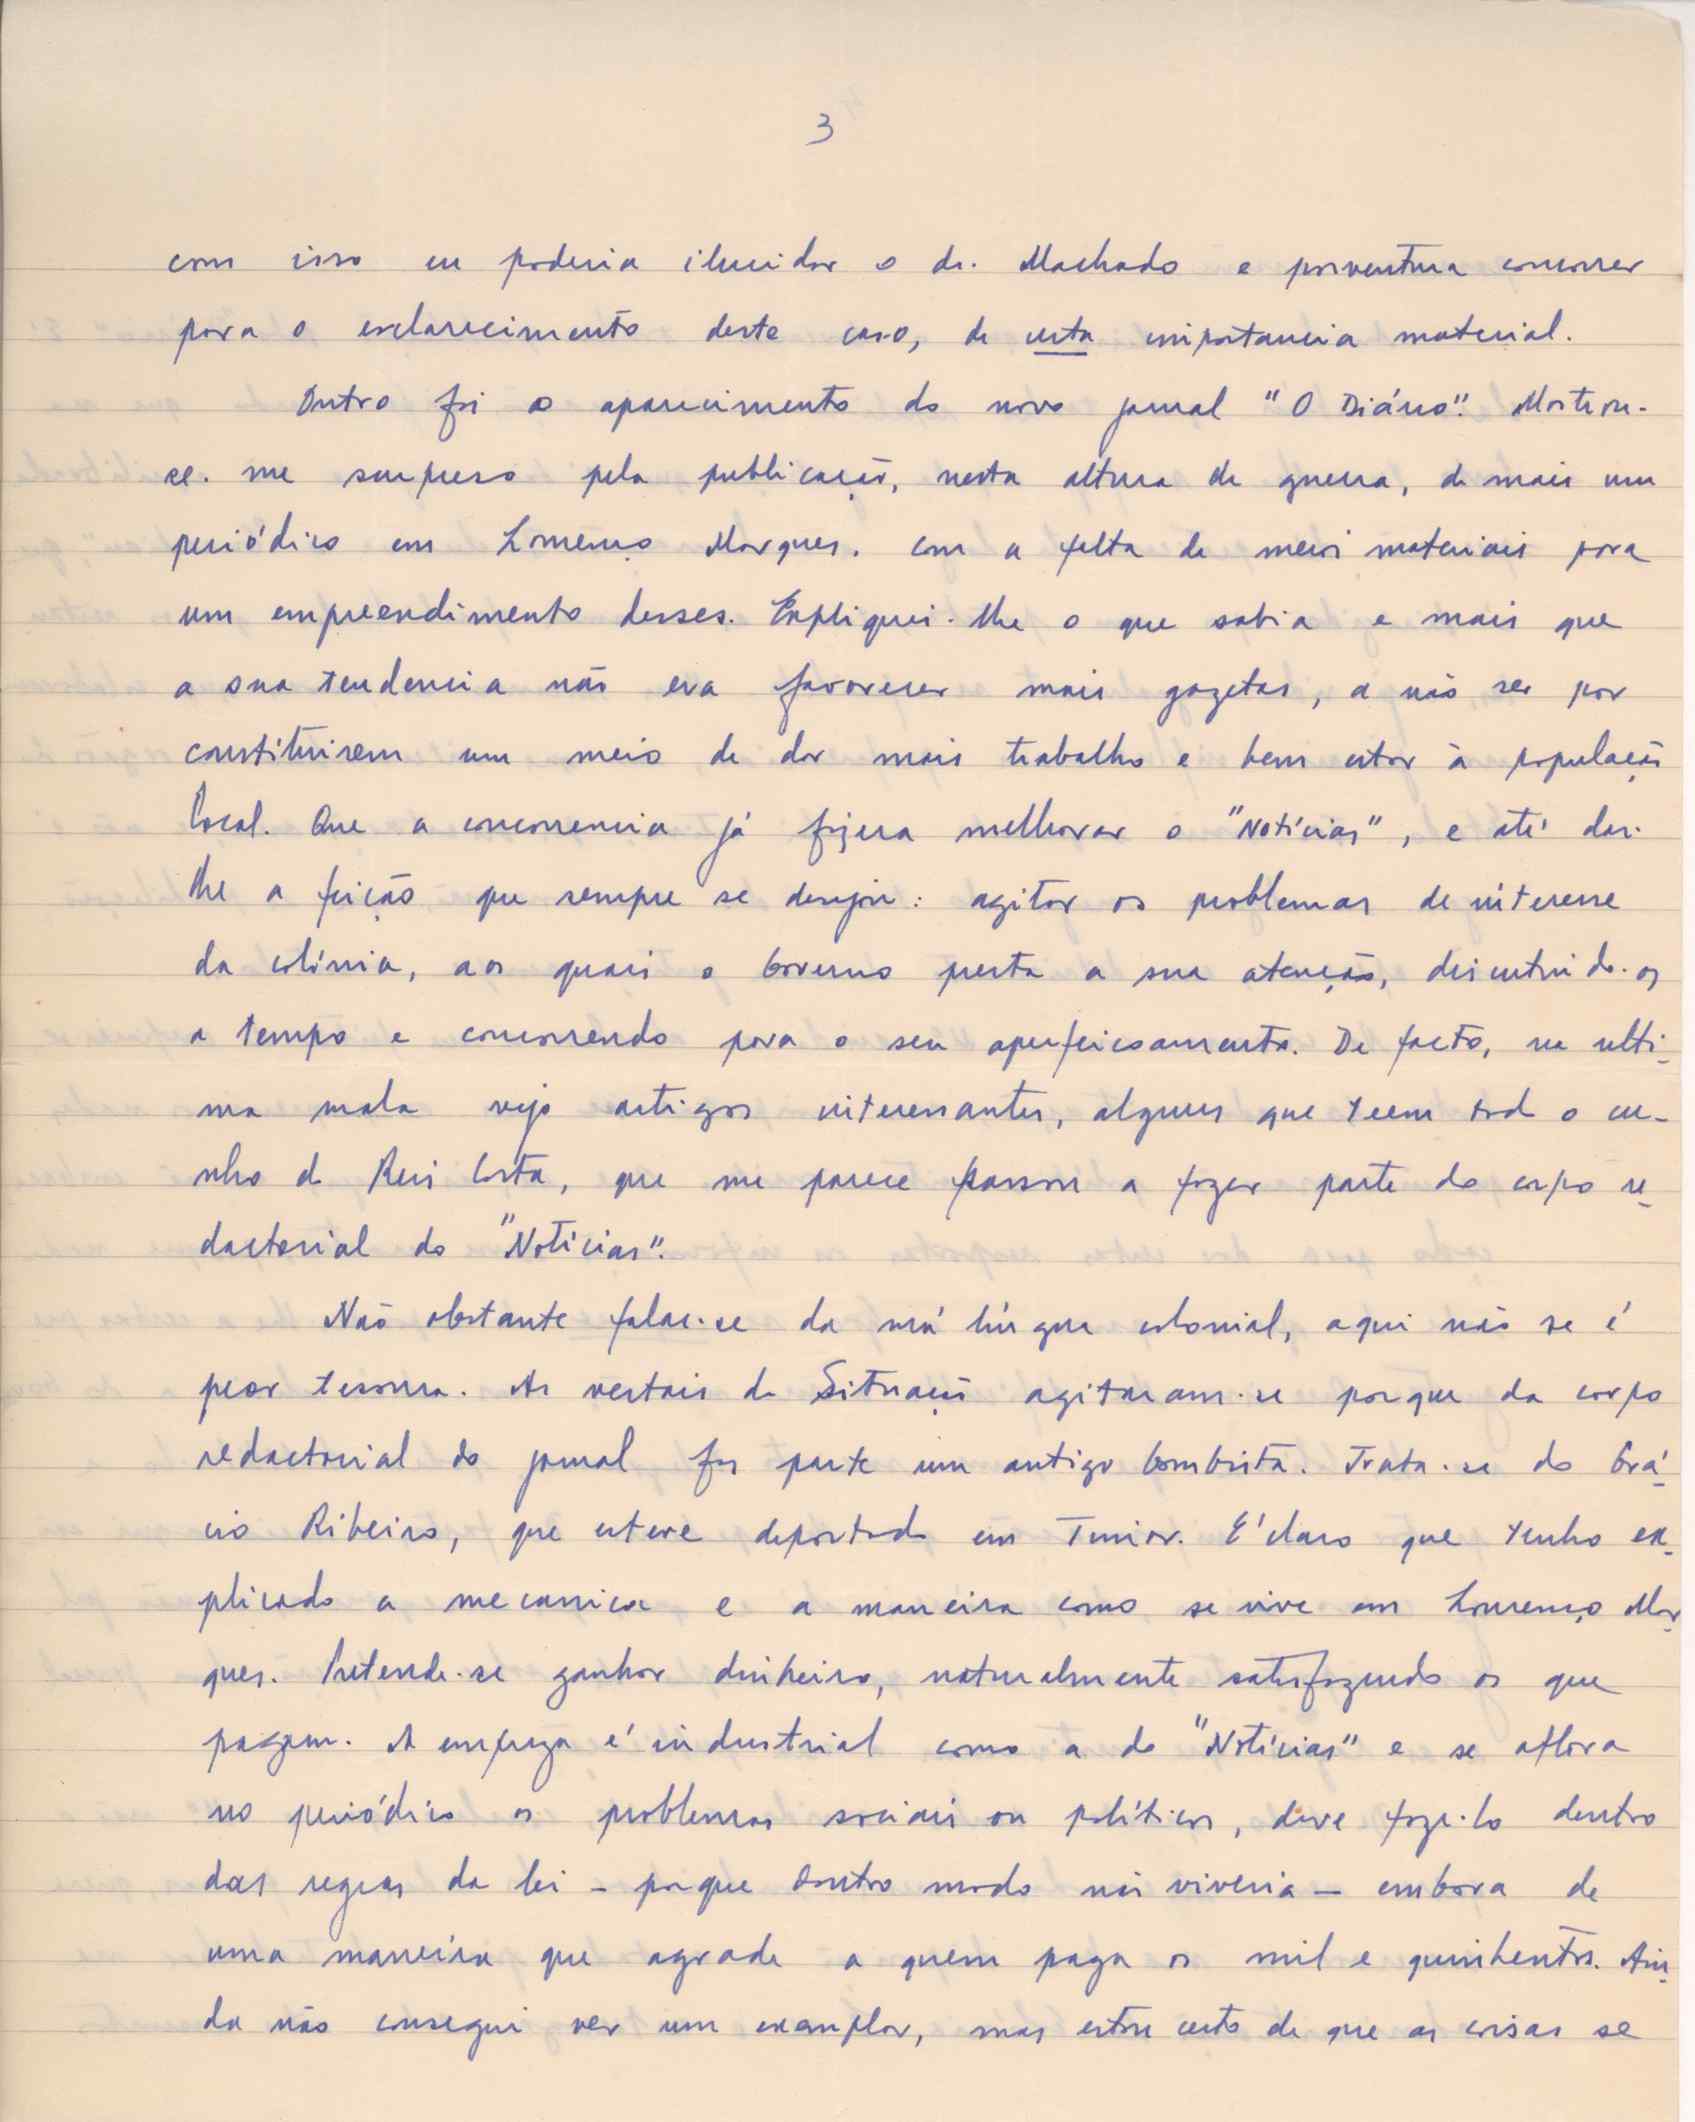 3
com isso eu poderia elucidar o dr. Machado e porventura concorrer
para o esclarecimento deste caso, de certa importancia material.
Outro foi o aparecimento do novo jornal "O Diário". Mostrou-
se-me surpreso pela publicação, nesta altura de guerra, de mais um
periódico em Lourenço Marques. com a falta de meios materiais para
um empreendimento desses. Expliquei-lhe o que sabia e mais que
a sua tendencia não era favorecer mais gazetas, a não ser por
constituirem um meio de dar mais trabalho e bem estar à população
local. Que a concorrencia já fizera melhorar o "Notícias", e até dar-
lhe a feição que sempre se desejou: agitar os problemas de interesse
da colónia, aos quais o Governo presta a sua atenção, discutindo-os
a tempo e concorrendo para o seu aperfeiçoamento. De facto, na ulti-
ma mala vejo artigos interessantes, alguns que teem todo o cu-
nho do Reis Costa, que me parece passou a fazer parte do corpo re-
dactorial do "Notícias".
Não obstante falar-se da má língua colonial, aqui não se é
peor tesoura. As vestais da Situação agitaram-se porque da corpo
redactorial do jornal faz parte um antigo bombista. Trata-se do Grá-
cio Ribeiro, que esteve deportado em Timor. É claro que tenho ex-
plicado a mecanica e a maneira como se vive em Lourenço Mar-
ques. Pretende-se ganhar dinheiro, naturalmente satisfazendo os que
pagam. A empreza é industrial como a do "Notícias" e se aflora
no periódico os problemas sociais ou políticos, deve faze-lo dentro
das regras da lei - porque doutro modo não viveria - embora de
uma maneira que agrade a quem paga os mil e quinhentos. Ain-
da não consegui ver um exemplar, mas estou certo de que as coisas se